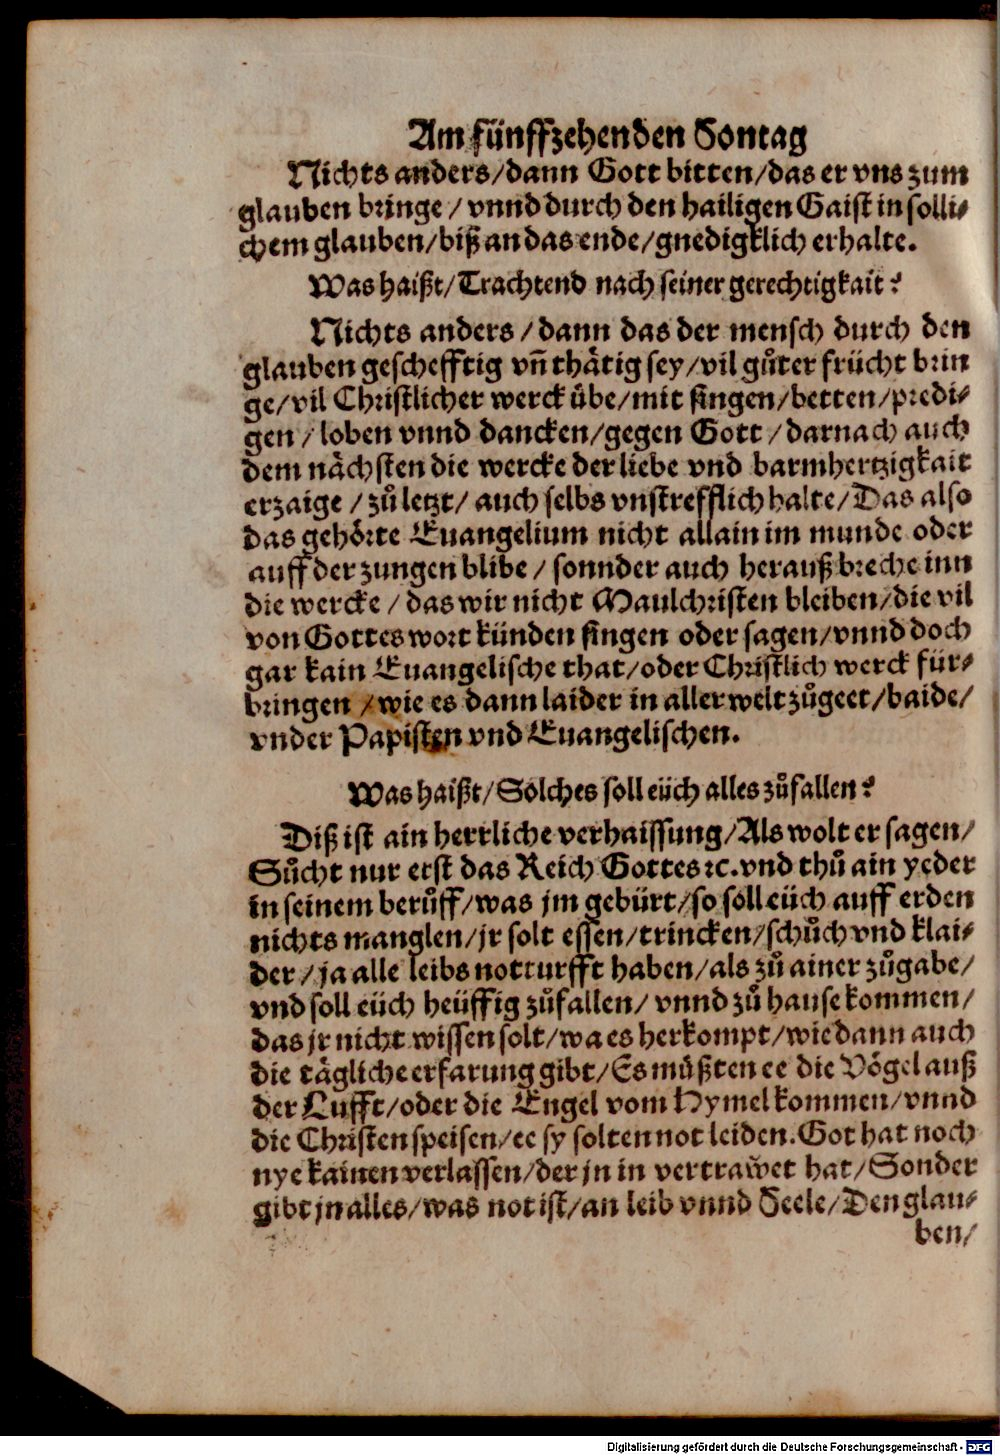 Am fünffzehenden Sontag
Nichts anders/dann Gott bitten/das er vns zum
glauben bringe/vnnd durch den hailigen Gaist in solli⸗
chem glauben/biß an das ende/gnedigklich erhalte.
Was haißt/Trachtend nach seiner gerechtigkait?
Nichts anders/dann das der mensch durch den
glauben geschefftig vñ thätig sey/vil gůter frücht brin
ge/vil Christlicher werck übe/mit singen/betten/predi⸗
gen/loben vnnd dancken/gegen Gott/darnach auch
dem nächsten die wercke der liebe vnd barmhertzigkait
erzaige/zů letzt/auch selbs vnstrefflich halte/Das also
das gehörte Euangelium nicht allain im munde oder
auff der zungen blibe/sonnder auch herauß breche inn
die wercke/das wir nicht Maulchristen bleiben/die vil
von Gottes wort künden singen oder sagen/vnnd doch
gar kain Euangelische that/oder Christlich werck für⸗
bringen/wie es dann laider in aller welt zůgeet/baide/
vnder Papisten vnd Euangelischen.
Was haißt/Solches soll eüch alles zůfallen?
Diß ist ain herrliche verhaissung/Als wolt er sagen/
Sůcht nur erst das Reich Gottes ꝛc. vnd thů ain yeder
in seinem berůff/was jm gebürt/so soll eüch auff erden
nichts manglen/jr solt essen/trincken/schůch vnd klai⸗
der/ja alle leibs notturfft haben/als zů ainer zůgabe/
vnd soll eüch heüffig zůfallen/vnnd zů hause kommen/
das jr nicht wissen solt/wa es herkompt/wie dann auch
die tägliche erfarung gibt/Es müßten ee die Vögel auß
der Lufft/oder die Engel vom Hymel kommen/vnnd
die Christen speisen/ee sy solten not leiden. Got hat noch
nye kainen verlassen/der jn in vertrawet hat/Sonder
gibt jn alles/was not ist/an leib vnnd Seele/Den glau⸗
ben/
Digitalisierung gefördert durch die Deutsche Forschungsgemeinschaft - DFG